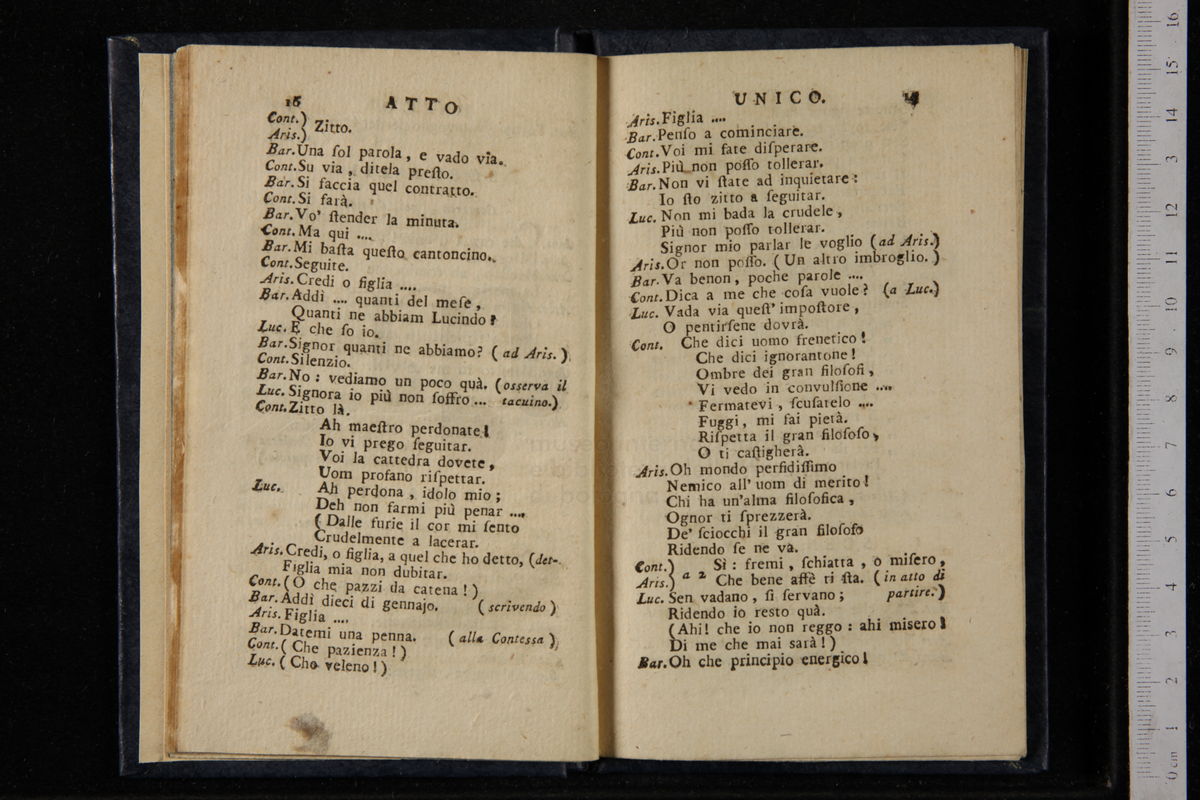 16 ATTO
Cont.)
Aris.) Zitto.
Bar.Una ſol parola, e vado via.
Cont.Su via, ditela preſto.
Bar.Si faccia quel contratto.
Cont.Si farà.
Bar.Vo' ſtender la minuta.
Cont.Ma qui ....
Bar.Mi baſta queſto cantoncino.
Cont.Seguite.
Aris.Credi o figlia ....
Bar.Addì .... quanti del meſe,
Quanti ne abbiam Lucindo?
Luc.E che ſo io.
Bar.Signor quanti ne abbiamo? (ad Aris.)
Cont.Silenzio.
Bar.No: vediamo un poco quà. (osserva il
Luc.Signora io più non ſoffro ... tacuino.)
Cont.Zitto là.
Ah maeſtro perdonate!
Io vi prego ſeguitar.
Voi la cattedra dovete,
Uom profano riſpettar.
Luc. Ah perdona, idolo mio;
Deh non farmi più penar ....
(Dalle furie il cor mi ſento
Crudelmente a lacerar.
Aris.Credi, o figlia, a quel che ho detto, (det-
Figlia mia non dubitar.
Cont.(O che pazzi da catena!)
Bar.Addì dieci di gennajo. (scrivendo)
Aris.Figlia ....
Bar.Datemi una penna. (alla Contessa)
Cont.(Che pazienza!)
Luc.(Che veleno!)
UNICO.
Aris.Figlia ....
Bar.Penſo a cominciare.
Cont.Voi mi fate diſperare.
Aris.Più non poſſo tollerar.
Bar.Non vi ſtate ad inquietare:
Io ſto zitto a ſeguitar.
Luc. Non mi bada la crudele,
Più non poſſo tollerar.
Signor mio parlar le voglio (ad Aris.)
Aris.Or non poſſo. (Un altro imbroglio.)
Bar.Va benon, poche parole ....
Cont.Dica a me che coſa vuole? (a Luc.)
Luc. Vada via queſt' impoſtore,
O pentirſene dovrà.
Cont. Che dici uomo frenetico!
Che dici ignorantone!
Ombre dei gran filoſofi,
Vi vedo in convulſione ....
Fermatevi, ſcuſatelo ....
Fuggi, mi fai pietà.
Riſpetta il gran filoſofo,
O ti caſtigherà.
Aris.Oh mondo perfidiſſimo
Nemico all' uom di merito!
Chi ha un'alma filoſofica,
Ognor ti ſprezzerà.
De' ſciocchi il gran filoſofo
Ridendo ſe ne va.
Cont.) Sì: fremi, ſchiatta, o miſero,
Aris.) a 2 Che bene affè ti ſta. (in atto di
Luc. Sen vadano, ſi ſervano; partire.)
Ridendo io resto quà.
(Ahi! che io non reggo: ahi misero!
Di me che mai sarà!)
Bar.Oh che principio energico!